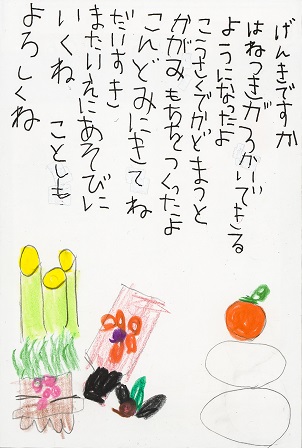 げんきですか
はねつきがつづいてできる
ようになったよ
こうさくでかどまつと
かがみもちをつくったよ
こんどみにきてね
だいすき
またいえにあそびに
いくね ことしも
よろしくね